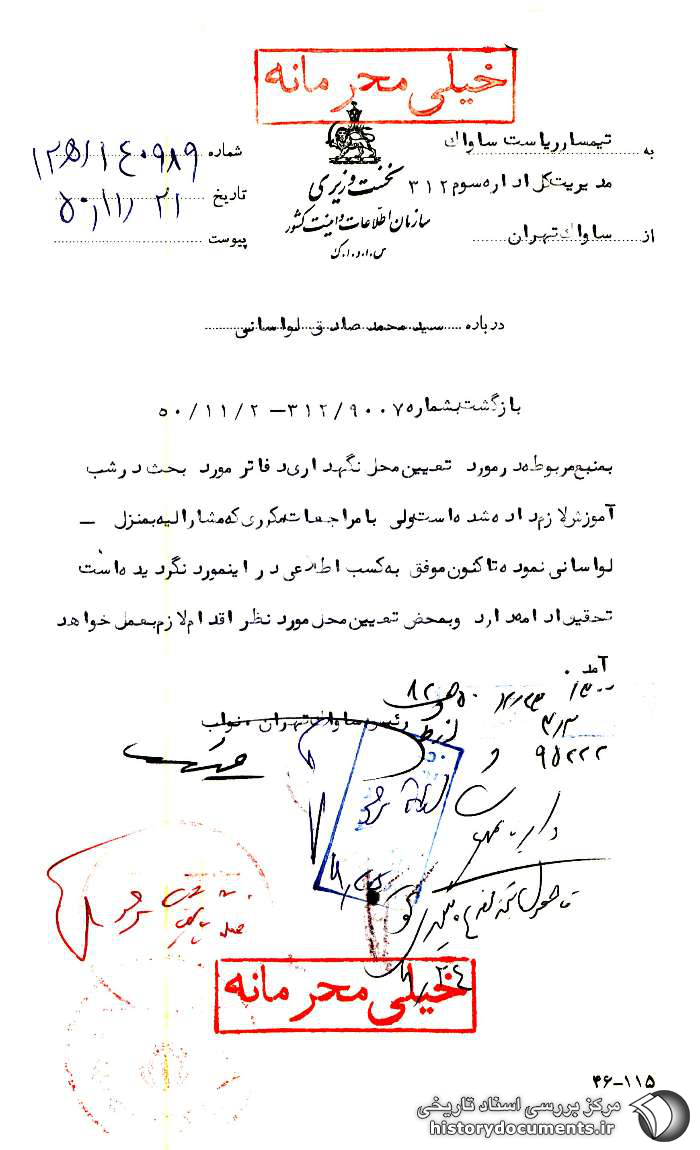 خیلی محرمانه
به تیمسار ریاست ساواک
مدیریت کل اداره سوم ۳۱۲
از ساواک تهران
نخست وزیری
سازمان اطلاعات و امنیت کشور
س.ا.و.ا.ک
شماره ۱۲۵/۱۴۰۹۸۹
تاریخ ۵۰/۱۱/۲۱
پیوست
درباره سید محمد صادق لواسانی
بازگشت بشماره ۳۱۲/۹۰۰۷ – ۵۰/۱۱/۲
بمنبع مربوطه در مورد تعیین محل نگهداری دفاتر مورد بحث در شب
آموزش لازم داده شده است ولی با مراجعات مکرری که مشارالیه بمنزل –
لواسانی نموده تاکنون موفق به کسب اطلاعی در اینمورد نگردیده است
تحقیق ادامه دارد و بمحض تعیین محل مورد نظر اقدام لازم بعمل خواهد
آمد .
رئیس ساواک تهران . نواب
از طرف
۹۵۲۲۲
خیلی محرمانه
۴۶-۱۱۵
مرکز بررسی اسناد تاریخی
historydocuments.ir